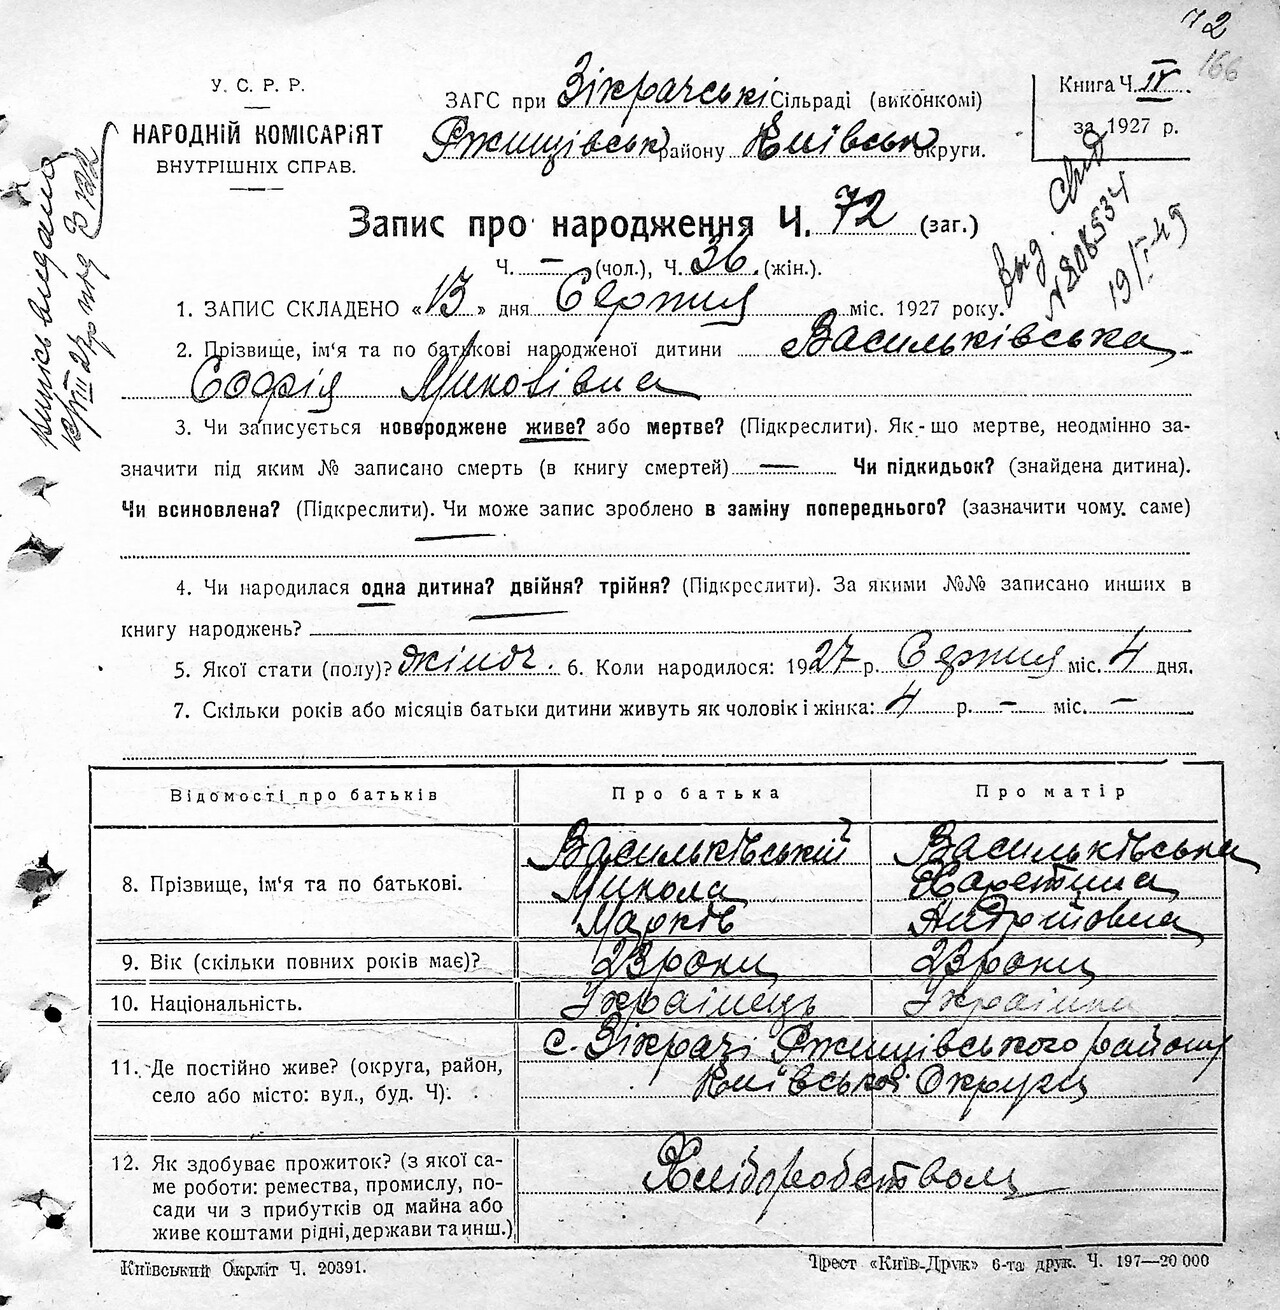 72
166
У. С. Р. Р.
НАРОДНІЙ КОМІСАРІЯТ
ВНУТРІШНІХ СПРАВ.
ЗАГС при Зікрачські Сільраді (виконкомі)
Ржищівськ району Київськ округи.
Книга Ч. IV
за 1927 р.
Запис про народження Ч. 72 (заг.)
Ч. – (чол.), Ч. 36 (жін.).
1. ЗАПИС СКЛАДЕНО «13» дня Серпня міс. 1927 року.
2. Прізвище, ім'я та по батькові народженої дитини Васильківська
Софія Миколівна
3. Чи записується новороджене живе? або мертве? (Підкреслити). Як-що мертве, неодмінно за-
значити під яким № записано смерть (в книгу смертей) — Чи підкидьок? (знайдена дитина).
Чи всиновлена? (Підкреслити). Чи може запис зроблено в заміну попереднього? (зазначити чому. саме)
4. Чи народилася одна дитина? двійня? трійня? (Підкреслити). За якими №№ записано инших в
книгу народжень?
5. Якої стати (полу)? жіноч. 6. Коли народилося: 1927 р. Серпня міс. 4 дня.
7. Скільки років або місяців батьки дитини живуть як чоловік і жінка: 4 р. – міс. –
Відомості про батьків
Про батька
Про матір
8. Прізвище, ім'я та по батькові.
Васильківський
Микола
Марків
Васильківська
Харетина
Андріївна
9. Вік (скільки повних років має)?
23 роки
23 роки
10. Національність.
Українець
Українка
11. Де постійно живе? (округа, район,
село або місто: вул., буд. Ч).
с. Зікрачі Ржищівського району
Київської Округи
12. Як здобуває прожиток? (з якої са-
ме роботи: ремества, промислу, по-
сади чи з прибутків од майна або
живе коштами рідні, держави та инш.)
Хліборобством
Київський Окрліт Ч. 20391.
Трест «Київ-Друк» 6-та друк. Ч. 197—20 000
выд. свид
19/I-49